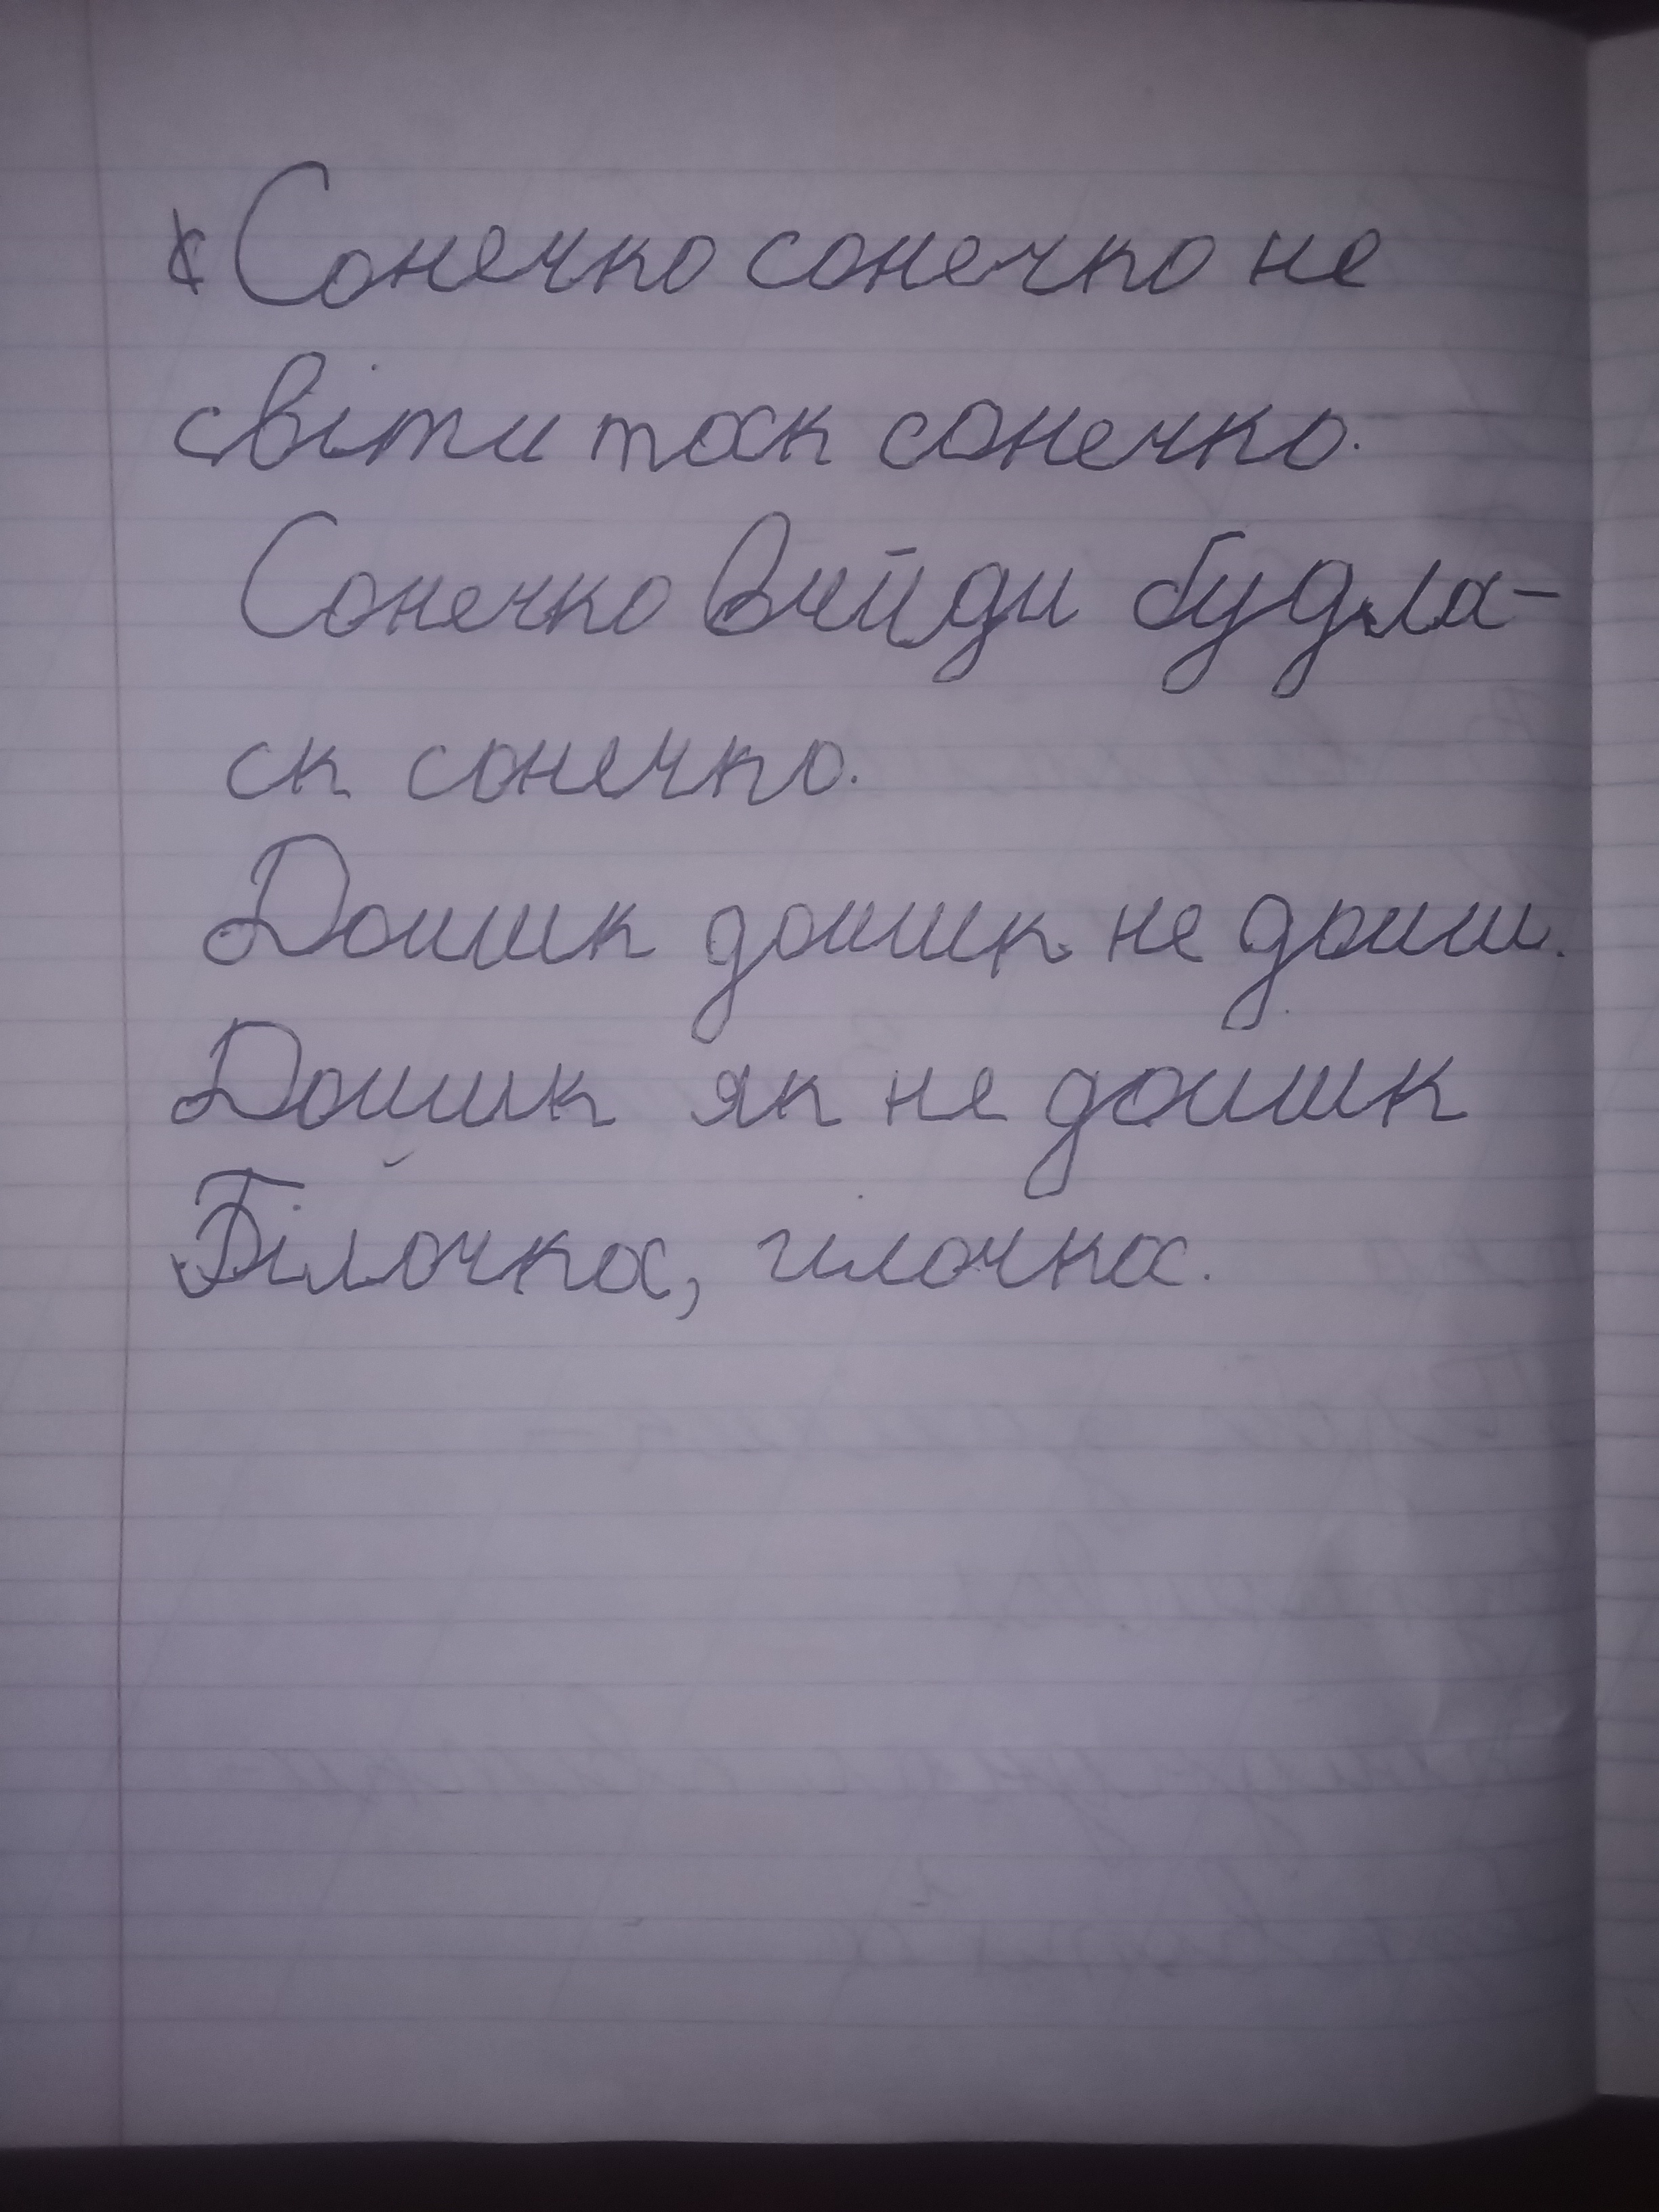 Сонечко сонечко не
світи так сонечко.
Сонечко Вийди будла-
ск сонечко.
Дошик дошик не дош.
Дошик як не дошик
Білочка, гілочка.